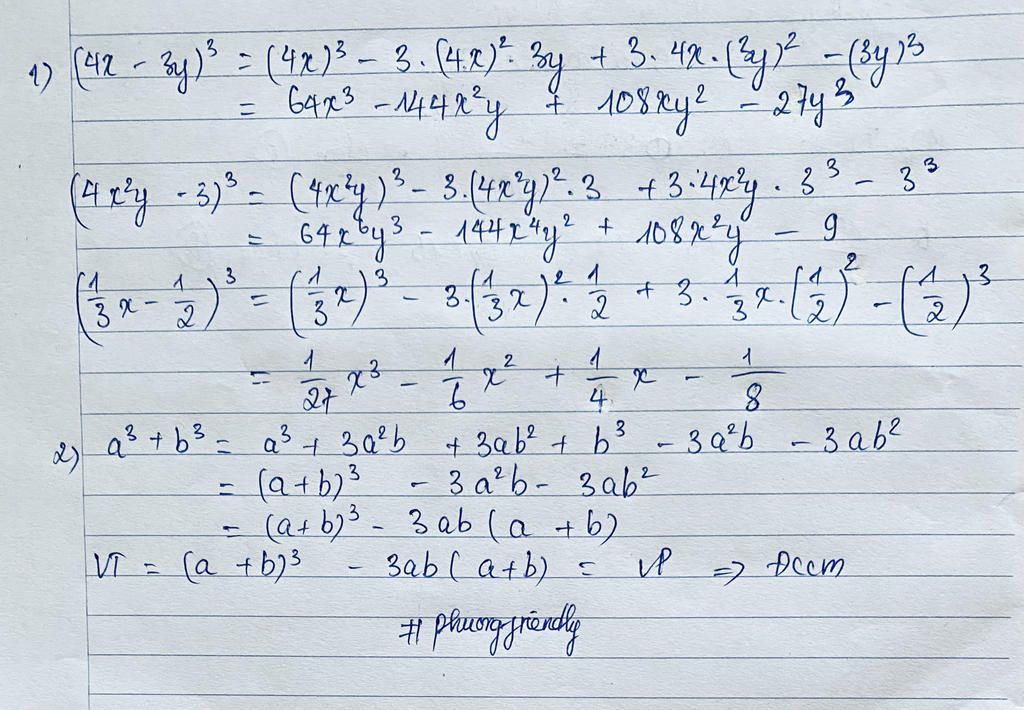 1) (4x - 3y)³ = (4x)³ - 3.(4x)².3y + 3.4x.(3y)² - (3y)³
= 64x³ - 144x²y + 108xy² - 27y³
(4x²y - 3)³ = (4x²y)³ - 3.(4x²y)².3 + 3.4x²y.3³ - 3³
= 64x⁶y³ - 144x⁴y² + 108x²y - 9
(1/3 x - 1/2)³ = (1/3 x)³ - 3.(1/3 x)².1/2 + 3.1/3 x.(1/2)² - (1/2)³
= 1/27 x³ - 1/6 x² + 1/4 x - 1/8
2) a³ + b³ = a³ + 3a²b + 3ab² + b³ - 3a²b - 3ab²
= (a+b)³ - 3a²b - 3ab²
= (a+b)³ - 3ab(a + b)
VT = (a + b)³ - 3ab(a+b) = VP => Đccm
# phuongfriendly